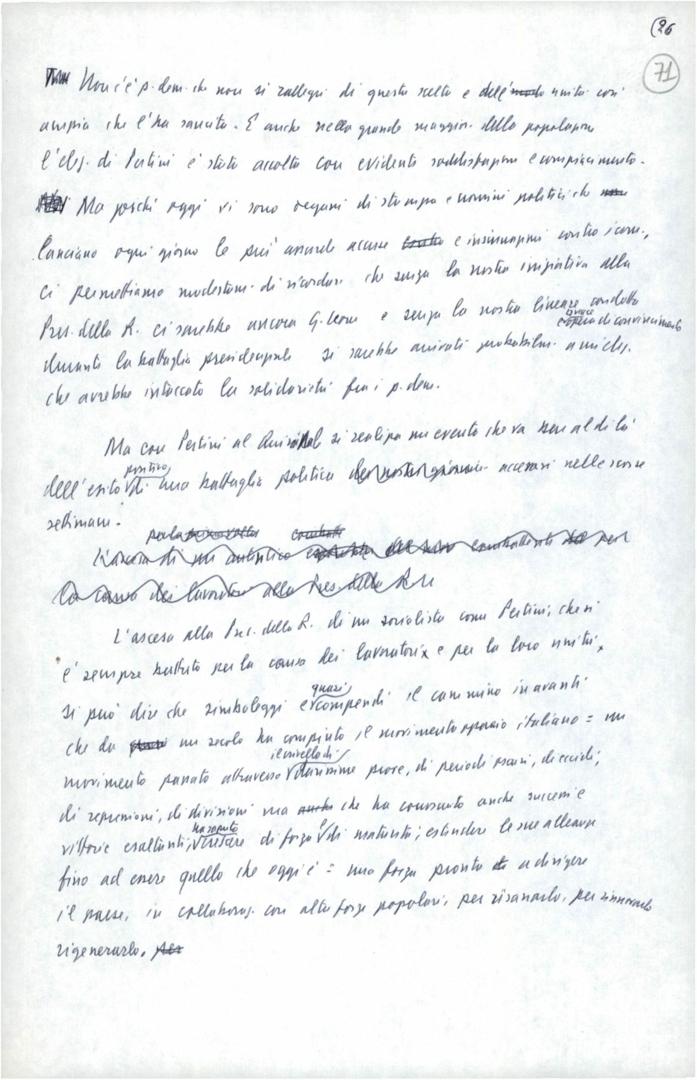 (26
71
Non c'è p. dem. che non si rallegri di questa scelta e dell' unità così
ampia che l'ha sancita. E anche nella grande maggior. della popolazione
l'elez. di Pertini è stata accolta con evidente soddisfazione e compiacimento.
Ma poiché oggi vi sono organi di stampa e uomini politici che
lanciano ogni giorno le più assurde accuse e insinuazioni contro i com.,
ci permettiamo modestam. di ricordare che senza la nostra iniziativa alla
Pres. della R. ci sarebbe ancora G. Leone e senza la nostra lineare condotta
e opera di convincimento
durante la battaglia presidenziale si sarebbe arrivati probabilm. a un'elez.
che avrebbe intaccato la solidarietà fra i p. dem.
Ma con Pertini al Quirinale si realizza un evento che va ben al di là
positivo
dell'esito di una battaglia politica accesasi nelle scorse
settimane.
per la
L'ascesa di un autentico combattente per
la causa dei lavoratori alla Pres. della R.
L'ascesa alla Pres. della R. di un socialista come Pertini, che si
è sempre battuto per la causa dei lavoratori e per la loro unità,
quasi
si può dire che simboleggi e compendi il cammino in avanti
che da un secolo ha compiuto il movimento operaio italiano = un
il vaglio di
movimento passato attraverso durissime prove, di periodi oscuri, di eccidi,
di repressioni, di divisioni ma che ha conosciuto anche successi e
ha saputo
vittorie esaltanti, crescere di forza e di maturità, estendere le sue alleanze
fino ad essere quello che oggi è = una forza pronta a dirigere
il paese, in collaboraz. con altre forze popolari, per risanarlo, per rinnovarlo
rigenerarlo. per